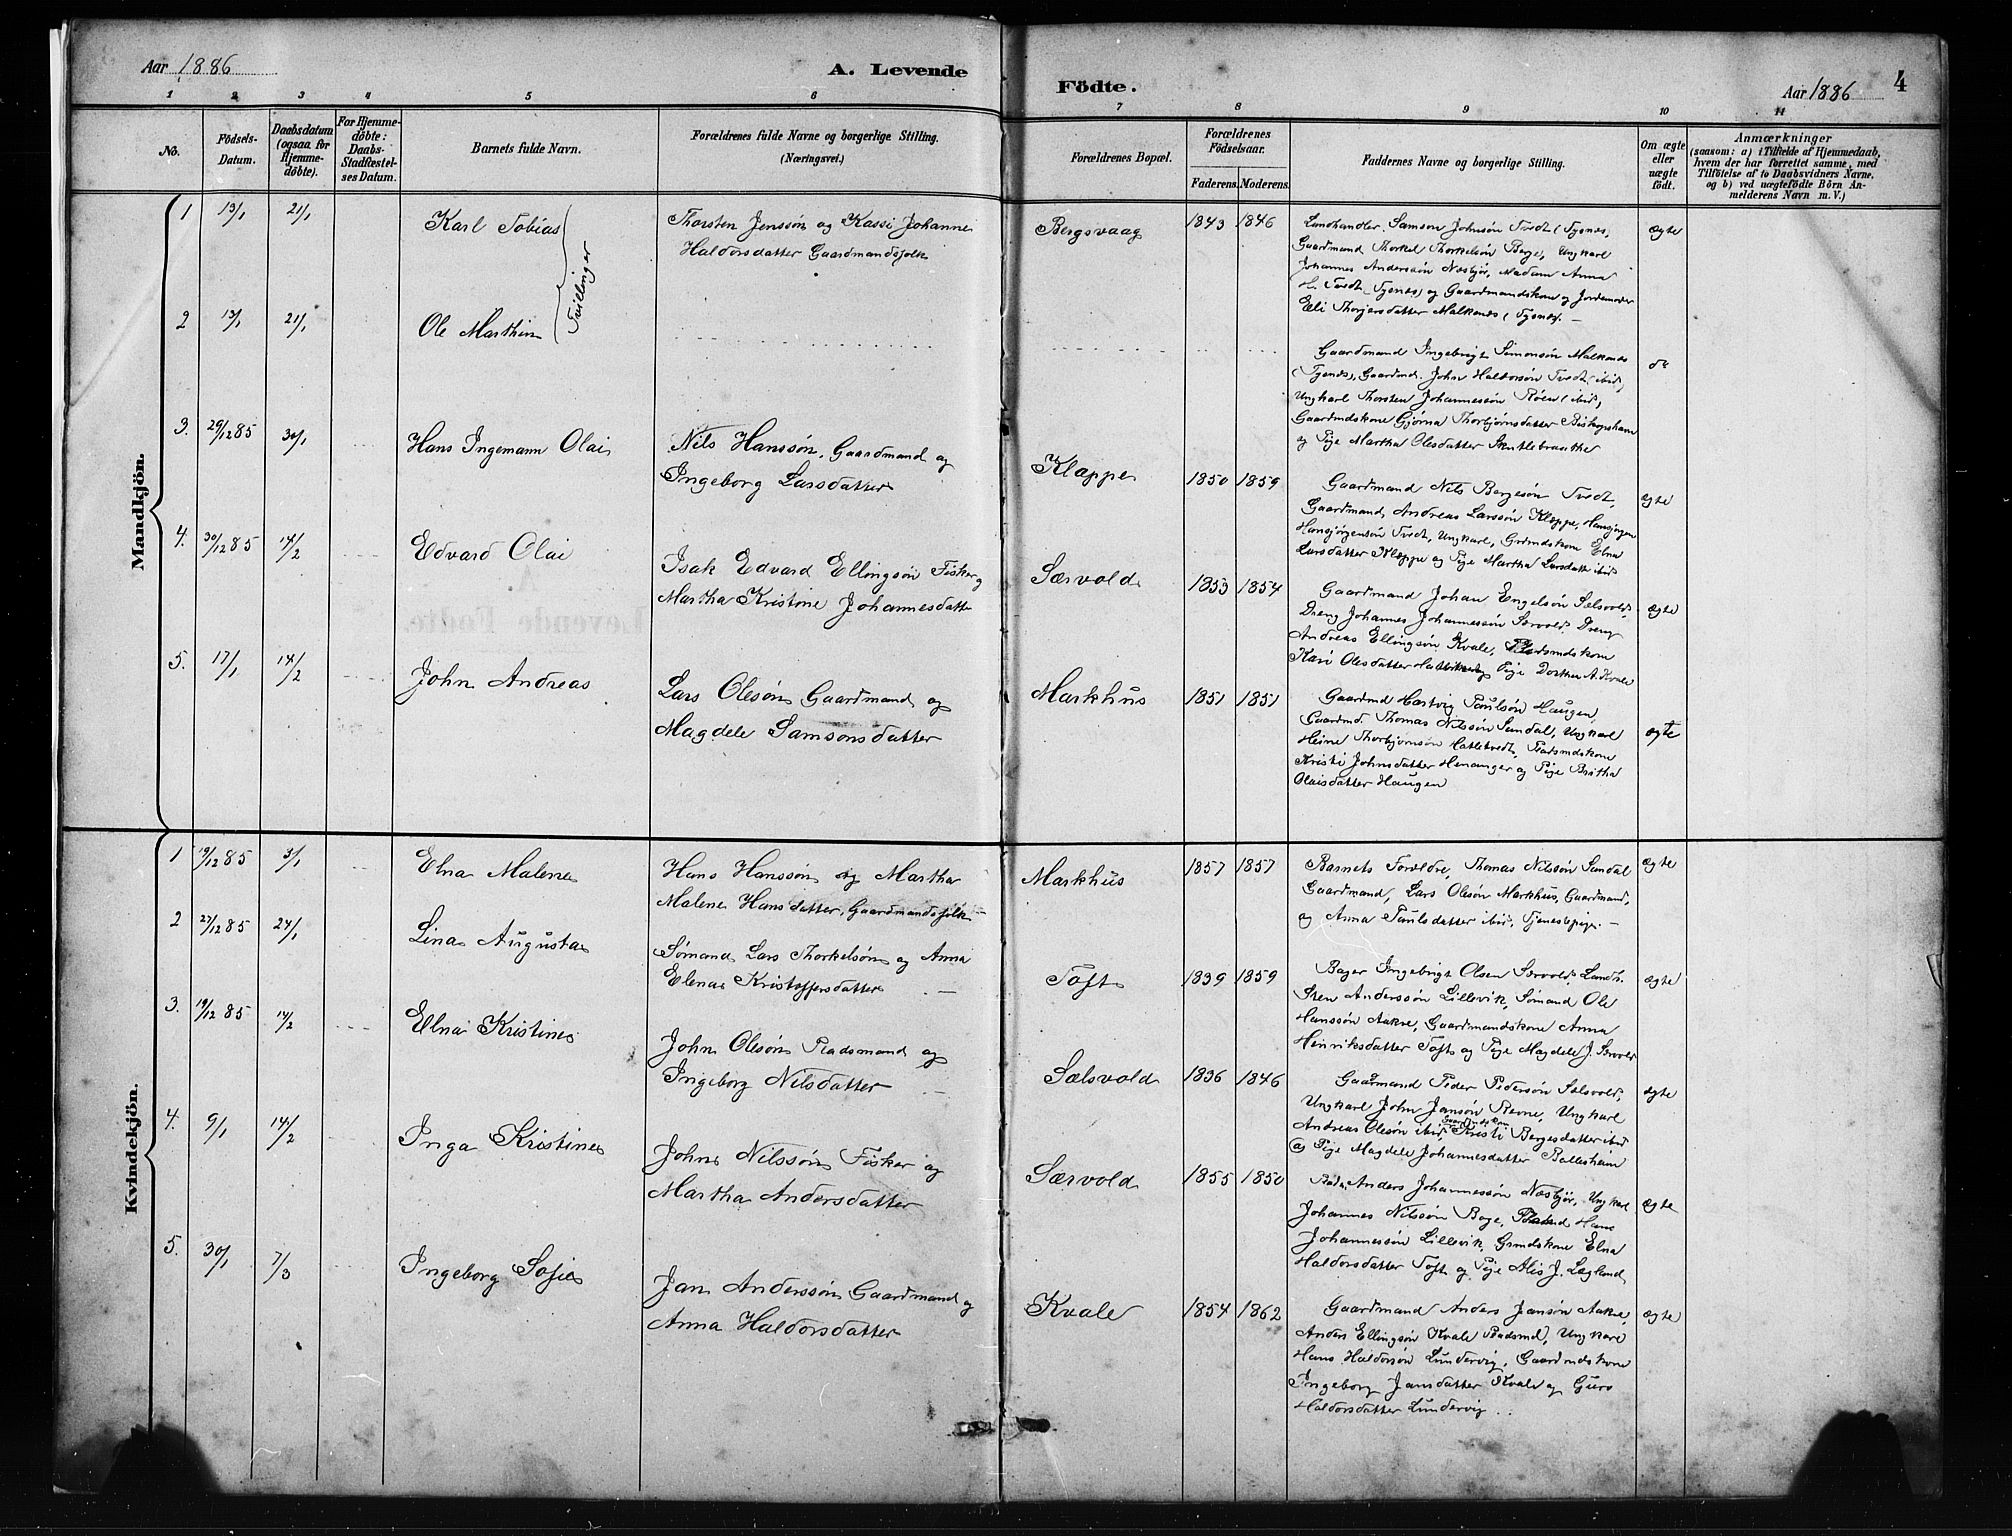 Aar 1886
A. Levende
Födte.
Aar 1886
4
1 2 3 4 5 6 7 8 9 10 11
No.
Födsels-Datum.
Daabsdatum (ogsaa for Hjemme-döbte).
For Hjemme-döbte: Daabs-Stadfæstel-ses Datum.
Barnets fulde Navn.
Forældrenes fulde Navne og borgerlige Stilling.
(Næringsvei.)
Forældrenes Bopæl.
Forældrenes Födselsaar.
Faderens. Moderens.
Faddernes Navne og borgerlige Stilling.
Om ægte eller uægte födt.
Anmærkninger
(saasom: a) i Tilfælde af Hjemmedaab,
hvem der har forrettet samme, med
Tilföielse af to Daabsvidners Navne,
og b) ved uægtefödte Börn An-
melderens Navn m. V.)
Mandkjön.
1 13/1 21/1 Karl Tobias
Tvillinger
Thorsten Jenssøn og Kassi Johanne
Haldorsdatter Gaardmandsfolk
Bergsvaag 1843 1846
Landhandler Samson Johnsøn Tvedt (Tysnes,
Gaardmand Thorkel Thorkelsøn Berge, Ungkarl
Johannes Anderssøn Næsbjør, Madam Anna
H. Tvedt (Tysnes) og Gaardmandskone og Jordemoder
Eli Thorgersdatter Malkenes (Tysnes). -
ægte
2 13/1 21/1 Ole Marthin
Gaardmand Ingebrigt Simonsøn Malkenes
(Tysnes), Gaardmd. John Haldorsøn Tvedt (ibid)
Ungkarl Thorsten Johannessøn Røen (ibid),
Gaardmdskone Gjørna Thorbjørnsdatter Biskopshavn
og Pige Martha Olesdatter
do
3. 29/12 85 30/1 Hans Ingemann Olai
Nils Hanssøn, Gaardmand og
Ingeborg Larsdatter
Kleppe 1850 1859
Gaardmand Nils Børgesøn Tvedt,
Gaardmand, Andreas Larssøn Kleppe,
Hansjørgensøn Tvedt, Ungkarl, Grdmdskone Elna
Larsdatter Kleppe og Pige Martha Larsdatter ibid
ægte
4. 30/12 85 14/2 Edvard Olai
Isak Edvard Ellingsøn Fisker og
Martha Kristine Johannesdatter
Særvold 1853 1854
Gaardmand Johan Engelsøn Sælsvold,
Dreng Johannes Johannessøn Særvold, Dreng
Andreas Ellingsøn Kvale, Pladsmdskone
Kari Olesdatter Pige Dorthea A. Kvale
ægte
5. 17/1 14/2 John Andreas
Lars Olesøn Gaardmand og
Magdele Samsonsdatter
Markhus 1851 1851
Gaardmd Hartvig Paulsøn Haugen,
Gaardmd. Thomas Nilssøn Sundal, Ungkarl
Heine Thorbjørnsøn Hatletvedt, Pladsmdskone
Kristi Johnsdatter Henanger og Pige Britha
Olaisdatter Haugen
ægte
Kvindekjön.
1 19/12 85 3/1 Elna Malene
Hans Hanssøn og Martha
Malene Hansdatter, Gaardmandsfolk -
Markhus 1857 1857
Barnets Forældre, Thomas Nilssøn Sundal
Gaardmand, Lars Olesøn Markhus, Gaardmand,
og Anna Paulsdatter ibid, Tjenestepige. -
ægte
2 27/12 85 24/1 Lina Augusta
Sømand Lars Thorkelsøn og Anna
Elena Kristoffersdatter -
Toft 1839 1859
Bager Ingebrigt Olsen Særvold,
Anderssøn Lillevik, Sømand Ole
Hanssøn Aakre, Gaardmandskone Anna
Henriksdatter Toft og Pige Magdele J. Særvold
ægte
3. 19/12 85 14/2 Elna Kristine
John Olesøn Pladsmand og
Ingeborg Nilsdatter -
Sælsvold 1836 1846
Gaardmand Peder Pedersøn Sælsvold,
Ungkarl John Jansøn Revne, Ungkarl
Andreas Olesøn ibid, Gaardmdskone Kristi Børgesdatter ibid
og Pige Magdele Johannesdatter Ballesheim
ægte
4. 9/1 14/2 Inga Kristine
John Nilssøn Fisker og
Martha Andersdatter
Særvold 1855 1850
Anders Johannessøn Næsbjør, Ungkarl
Johannes Nilssøn Boge, Hans
Johannessøn Lillevik, Grmdskone Elna
Haldorsdatter Toft og Pige Alis J. Lægland
ægte
5. 30/1 7/3 Ingeborg Sofie
Jan Anderssøn Gaardmand og
Anna Haldorsdatter
Kvale 1854 1862
Gaardmand Anders Jansøn Aakre,
Anders Ellingsøn Kvale Pladsmd, Ungkarl
Hans Haldorsøn Lundervig, Gaardmdskone
Ingeborg Jansdatter Kvale og Guro
Haldorsdatter Lundervig
ægte